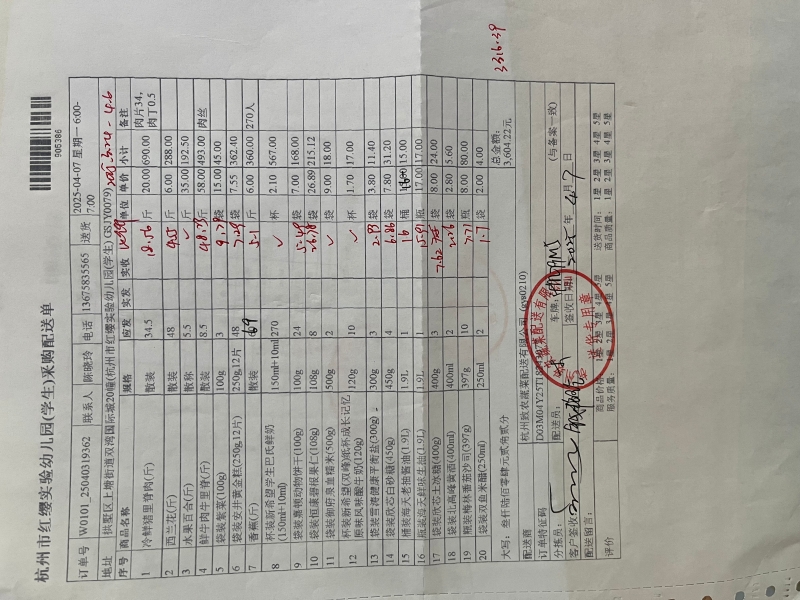 杭州市红缨实验幼儿园(学生)采购配送单
905386
订单号 W0101_25040319362 联系人 陈晓玲 电话 13675835565 送货 2025-04-07 星期一 6:00-7:00
地址 拱墅区上塘街道双湾国际城20幢(杭州市红缨实验幼儿园(学生)GSJY0079)
序号 商品名称 规格 应发 实发 实收 单位 单价 小计 备注
1 冷鲜猪里脊肉(斤) 散装 34.5 18.56 斤 20.00 690.00 肉片34,肉丁0.5
2 西兰花(斤) 散装 48 4.55 斤 6.00 288.00
3 水果百合(斤) 散称 5.5 ✓ 斤 35.00 192.50
4 鲜牛肉牛里脊(斤) 散装 8.5 斤 58.00 493.00 肉丝
5 袋装紫菜(100g) 100g 3 袋 15.00 45.00
6 袋装安井黄金糕(250g,12片) 250g,12片 48 7.29 袋 7.55 362.40
7 香蕉(斤) 散装 69 5.1 斤 6.00 360.00 270人
8 杯装新希望学生巴氏鲜奶(150ml+10ml) 150ml+10ml 270 ✓ 杯 2.10 567.00
9 袋装嘉顿动物饼干(100g) 100g 24 5.49 袋 7.00 168.00
10 袋装恒康碧根果仁(108g) 108g 8 26.78 袋 26.89 215.12
11 袋装御府泉血糯米(500g) 500g 2 ✓ 袋 9.00 18.00
12 杯装新希望(双峰)纸杯成长记忆原味风味酸牛奶(120g) 120g 10 ✓ 杯 1.70 17.00
13 袋装雪涛健康平衡盐(300g) 300g 3 2.93 袋 3.80 11.40
14 袋装欣芯白砂糖(450g) 450g 4 6.86 袋 7.80 31.20
15 桶装海天老抽酱油(1.9L) 1.9L 1 桶 15.00
16 瓶装海天鲜味生抽(1.9L) 1.9L 1 15.91 瓶 17.00 17.00
17 袋装欣芯土冰糖(400g) 400g 3 7.62 袋 8.00 24.00
18 袋装北高峰黄酒(400ml) 400ml 2 2.26 袋 2.80 5.60
19 瓶装榛林番茄沙司(397g) 397g 10 7.71 瓶 8.00 80.00
20 袋装双鱼米醋(250ml) 250ml 2 1.7 袋 2.00 4.00
大写: 叁仟陆佰零肆元贰角贰分 总金额: 3,604.22元
3316.39
配送商 杭州致农蔬菜配送有限公司 (gys0210)
订单特征码
分拣员: 配送员: 车牌: (与备案一致)
客户签收: 签收日期: 2025 年 4 月 7 日
配送留言:
评价 商品价格: 1星 2星 3星 4星 5星 送货时间: 1星 2星 3星 4星 5星
服务质量: 1星 2星 3星 4星 5星 商品质量: 1星 2星 3星 4星 5星
送货专用章